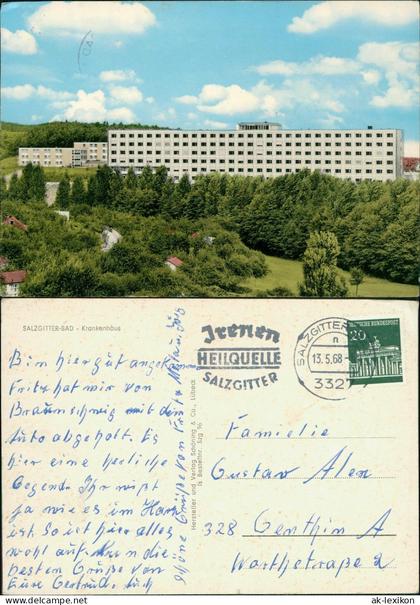 SALZGITTER-BAD - Krankenhaus
Bin hier gut angekommen
Fritz hat mir von
Braunschweig mit dem
Auto abgeholt. Es
hier eine herliche
Gegend. Ihr wißt
ja wie es im Harz
ist. So ist hier alles
wohl auf. Nun die
besten Grüße von
Eure Gertrud. Auch
schöne Grüße von Fritz
Hersteller und Verlag Schöning & Co., Lübeck
Bestellnr. Szg 96
Irenen
HEILQUELLE
SALZGITTER
SALZGITTER
n
13.5.68
3327
20
DEUTSCHE BUNDESPOST
Familie
Gustav Alex
328 Genthin A
Warthestraße 2
ak-lexikon.com